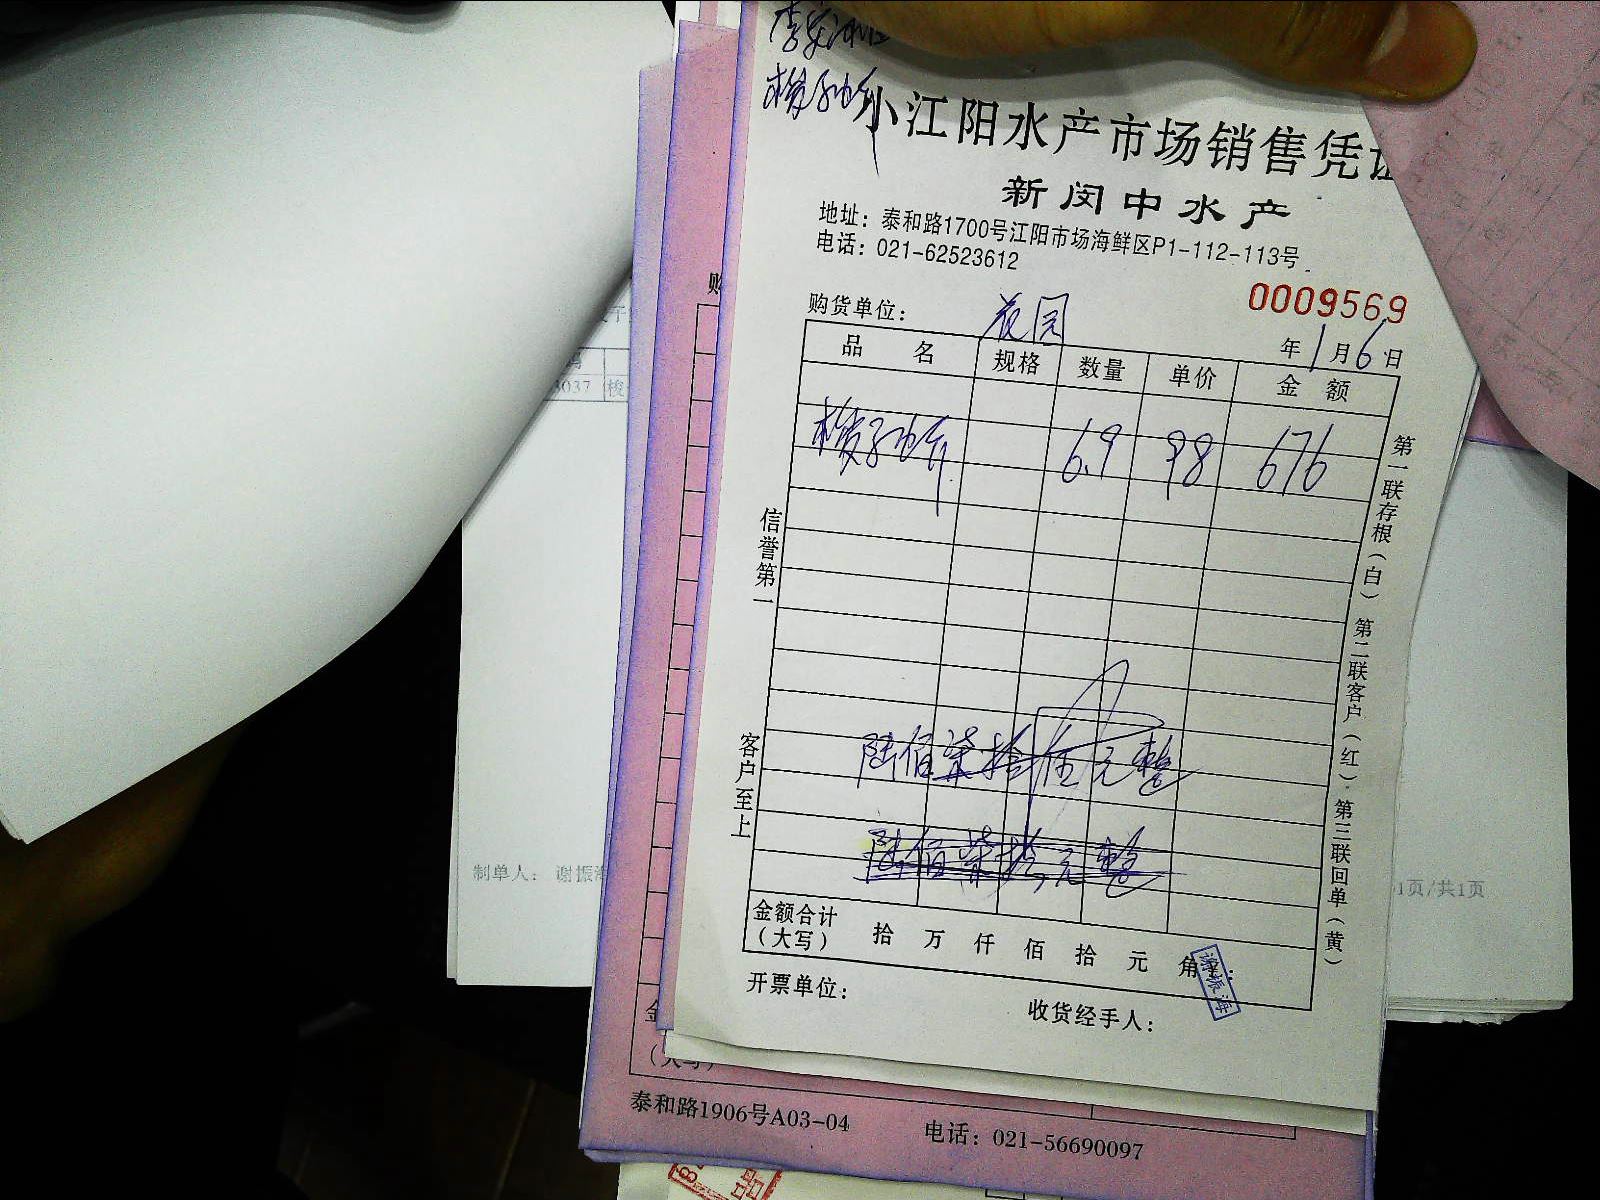 小江阳水产市场销售凭证
新闵中水产
地址：泰和路1700号江阳市场海鲜区P1-112-113号
电话：021-62523612
0009569
购货单位： 花园
年 1 月 6 日
品 名 规格 数量 单价 金 额
梭子蟹 6.9 98 676
陆佰柒拾陆元整
陆佰柒拾元整
金额合计（大写） 拾 万 仟 佰 拾 元 角
开票单位：
收货经手人：
谢振海
信誉第一 客户至上
第一联存根（白） 第二联客户（红） 第三联回单（黄）
购
3037 梭
制单人： 谢振海
1页/共1页
泰和路1906号A03-04 电话：021-56690097